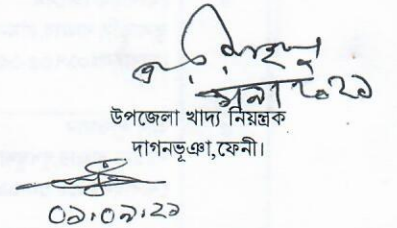 উপজেলা খাদ্য নিয়ন্ত্রক
দাগনভূঞা,ফেনী।
০১.০৯.২১